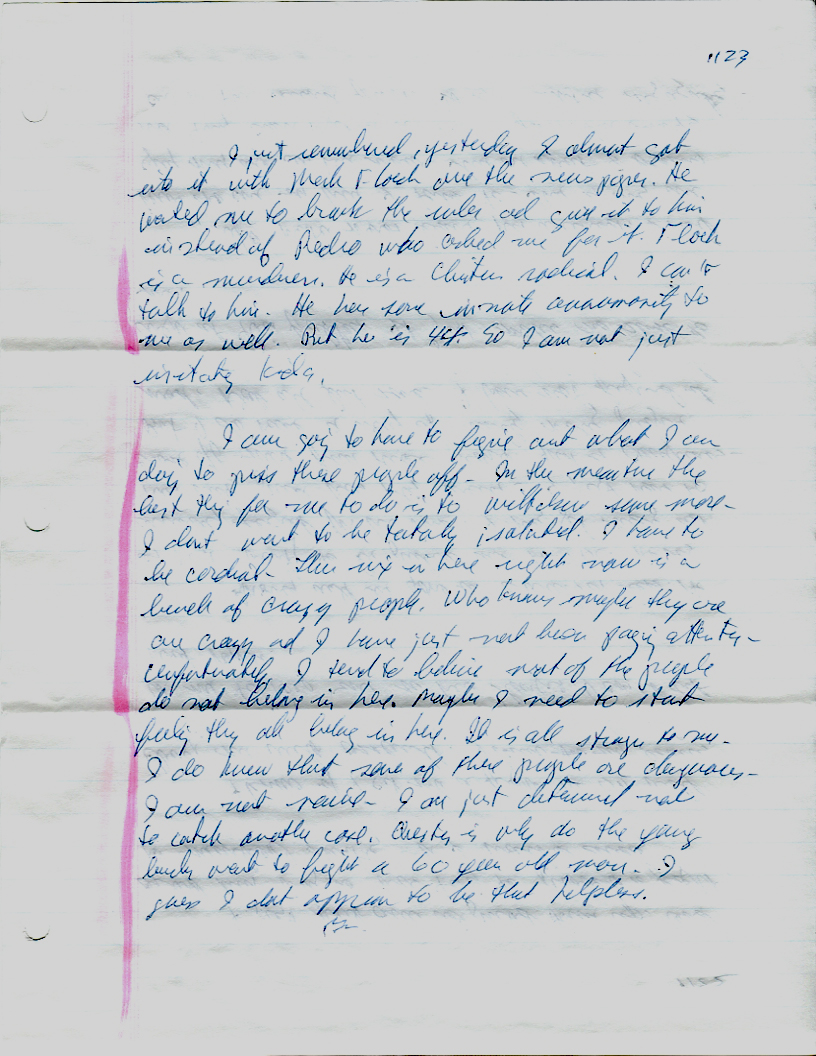 1123
I just remembered, yesterday I almost got
into it with Mark Floch over the newspaper. He
wanted me to break the rules and give it to him
instead of Pedro who asked me for it. Floch
is a murderer. He is a Christian radical. I can't
talk to him. He has some innate animosity to
me as well. But he is 44. So I am not just
irritating kids.
I am going to have to figure out what I am
doing to piss these people off. In the meantime the
best thing for me to do is to withdraw some more.
I dont want to be totally isolated. I have to
be cordial. The mix in here right now is a
bunch of crazy people. Who knows maybe they are
all crazy and I have just not been paying attention.
Unfortunately I tend to believe most of the people
do not belong in here. Maybe I need to start
feeling they all belong in here. It is all strange to me.
I do know that some of these people are dangerous.
I am not naive. I am just determined not
to catch another case. Question is why do the young
bucks want to fight a 60 year old man. I
guess I dont appear to be that helpless.